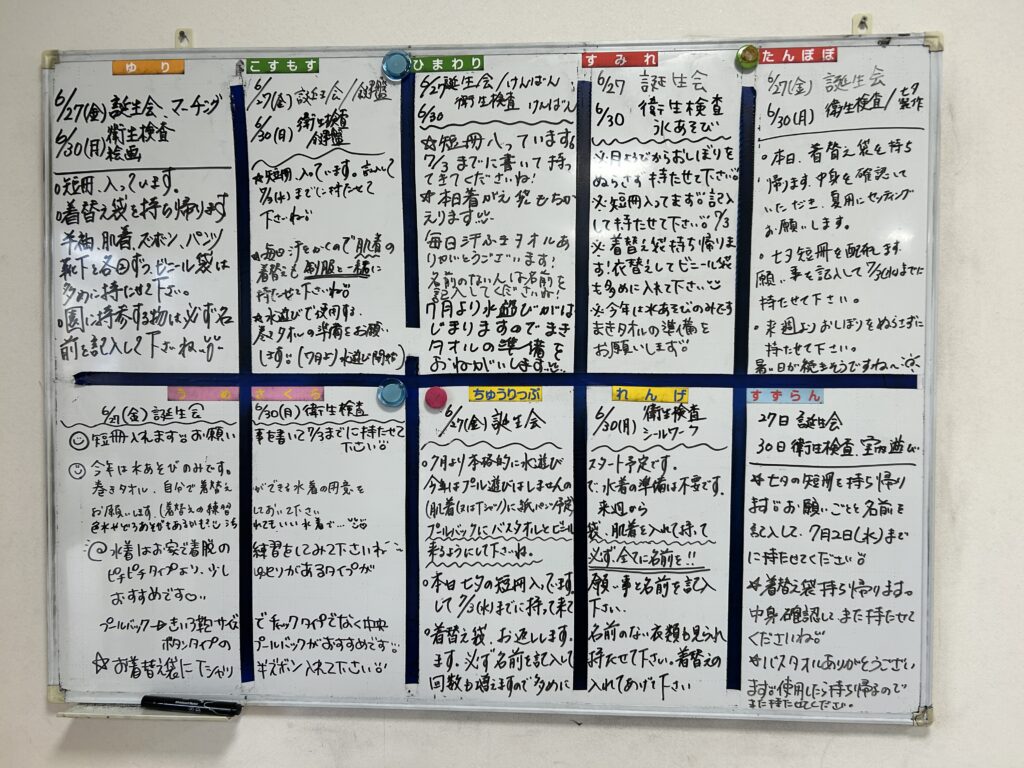 ゆり
6/27(金) 誕生会、マーチング
6/30(月) 衛生検査
絵画
○短冊、入っています。
○着替え袋を持ち帰ります
半袖、肌着、ズボン、パンツ
靴下を各回ずつ、ビニール袋は
多めに持たせて下さい。
○園に持参する物は必ず名
前を記入して下さいね
こすもす
6/27(金) 誕生会/鍵盤
6/30(月) 衛生検査
鍵盤
☆短冊、入っています。記入して
7/3(木)までに持たせて
下さいね
★毎日汗をかくので肌着の
着替えも制服と一緒に
持たせて下さいね
★水遊びで使用する、
巻きタオルの準備をお願い
します。(7月より水遊び開始)
ひまわり
6/27誕生会/けんばん
6/30 衛生検査 けんばん
☆短冊入っています。
7/3までに書いて持っ
てきてくださいね!
★本日着がえ袋もちか
えります
毎日汗ふきタオルあ
りがとうございます!
名前のない人は名前を
記入してくださいね!
7月より水遊びがは
じまりますのでまき
タオルの準備を
おねがいします
すみれ
6/27 誕生会
6/30 衛生検査
氷あそび
※月ようびからおしぼりを
ぬらさず持たせて下さい。
※短冊入ってます。記入
して持たせて下さい。7/3
※着替え袋持ち帰りま
す!衣替えしてビニール袋
も多めに入れて下さい
※今年は水あそびのみです
まきタオルの準備を
お願いします。
たんぽぽ
6/27(金) 誕生会
6/30(月) 衛生検査/七夕製作
○本日、着替え袋を持ち
帰ります。中身を確認して
いただき、夏用にセッティング
お願いします。
○七夕短冊を配布します
願い事を記入して7/3(木)までに
持たせて下さい。
○来週よりおしぼりをぬらさずに
持たせて下さい。
暑い日が続きそうですね〜
うめ さくら
6/27(金) 誕生会 6/30(月) 衛生検査
短冊入れます お願い事を書いて7/3までに持たせて
下さい
今年は水あそびのみです。
巻きタオル、自分で着替えができる水着の用意を
お願いします。(着替えの練習しておいて下さい
@水着はお家で着脱の練習をしてみて下さいね
ピチピチタイプより、少しゆとりがあるタイプが
おすすめです
プールバック→きいろ鞄サイズでチャックタイプでなく中央
ボタンタイプのプールバックがおすすめです
☆お着替え袋にTシャツ ズボン入れて下さい
ちゅうりっぷ れんげ
6/27(金) 誕生会 6/30(月) 衛生検査
シールワーク
○7月より本格的に水遊びスタート予定です。
今年はプール遊びはしませんので、水着の準備は不要です。
(肌着(又はTシャツ)に紙パンツ予定) 来週から
プールバックにバスタオルとビニール袋、肌着を入れて持って
来るようにして下さいね。 必ず、全てに名前を!!
○本日七夕の短冊入ってます。願い事と名前を記入
して7/3(木)までに持って来て下さい。
○着替え袋、お返しします。名前のない衣類も見られ
ます。必ず名前を記入して持たせて下さい。着替えの
回数も増えますので多めに入れてあげて下さい
すずらん
27日 誕生会
30日 衛生検査、室内遊び
★七夕の短冊を持ち帰り
ます。お願いごとと名前を
記入して、7月2日(水)まで
に持たせてください。
★着替え袋持ち帰ります。
中身確認し、また持たせて
くださいね
★バスタオルありがとうござい
ます。使用したら持ち帰るので
また持たせてください。